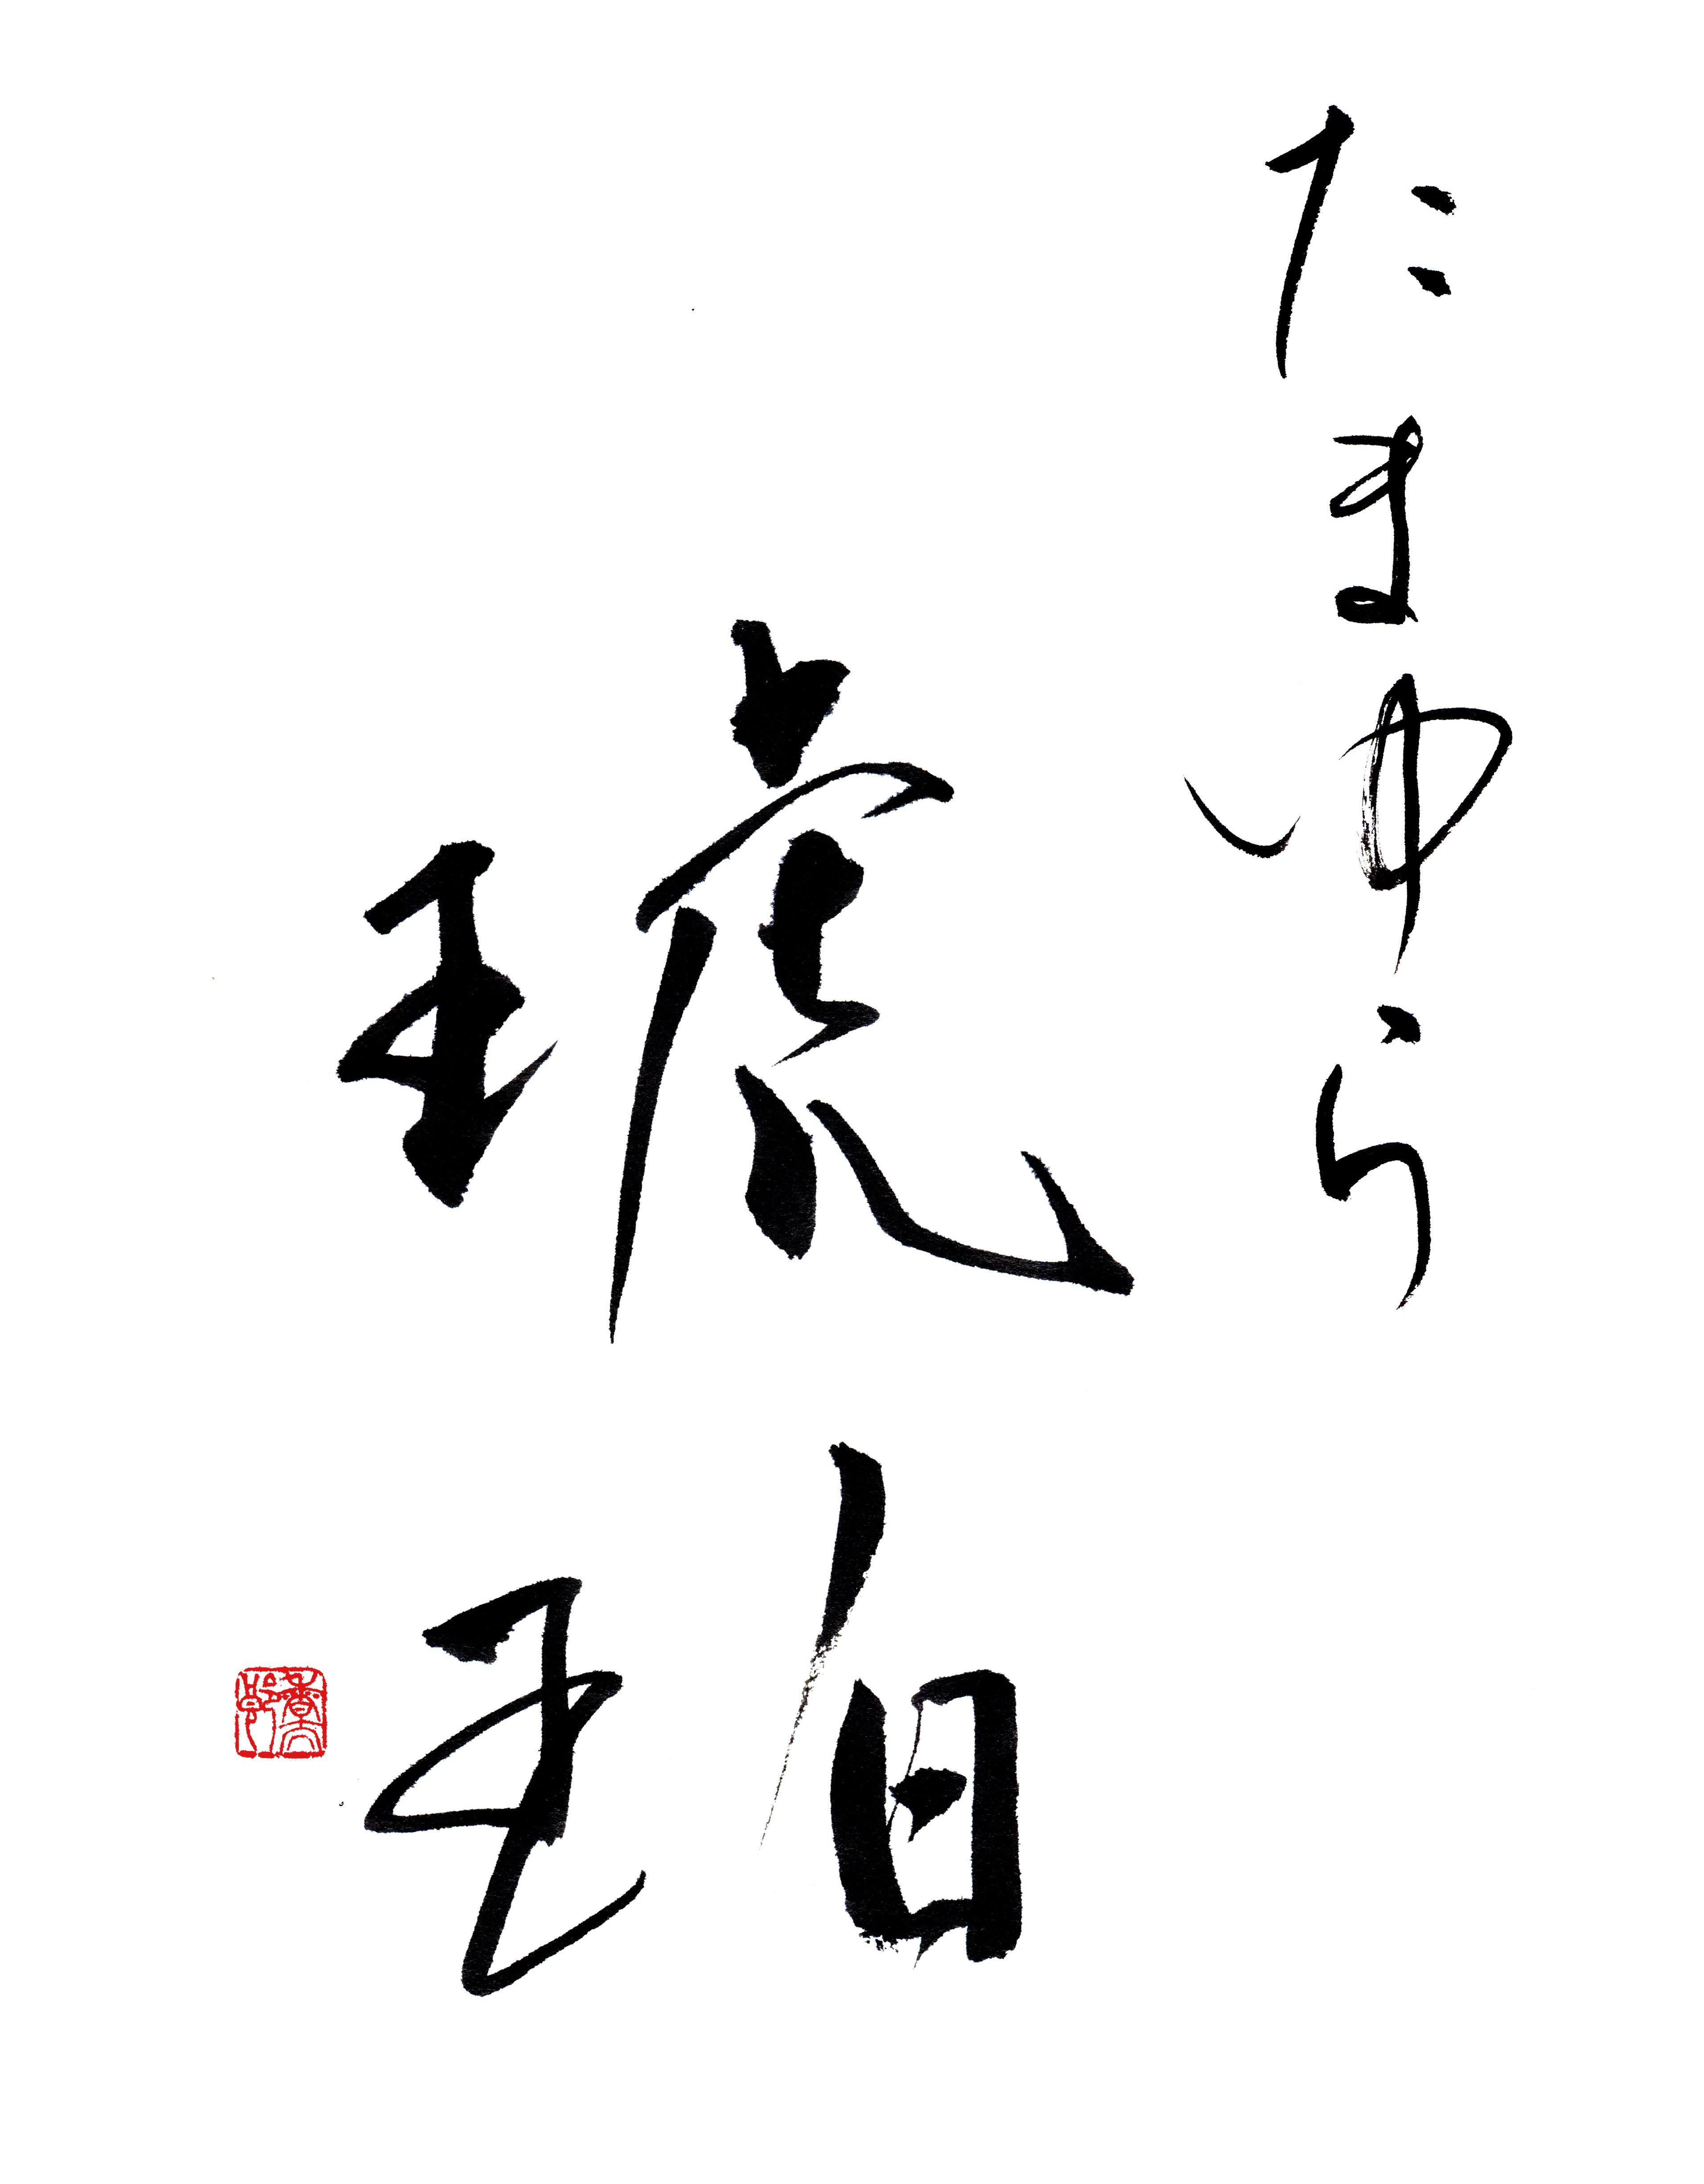 たまゆら
琥珀